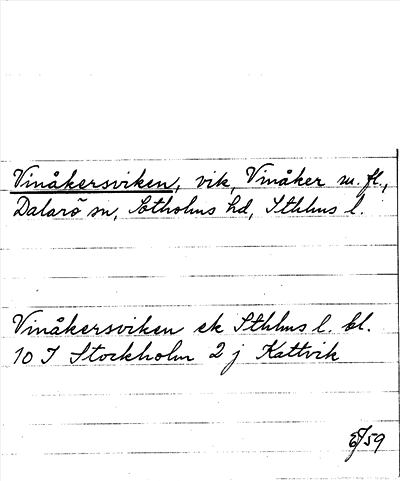 Vinåkersviken, vik, Vinåker m. fl.,
Dalarö sn, Sotholms hd, Sthlms l.
Vinåkersviken ek Sthlms l. bl.
10 I Stockholm 2 j Kattvik
59